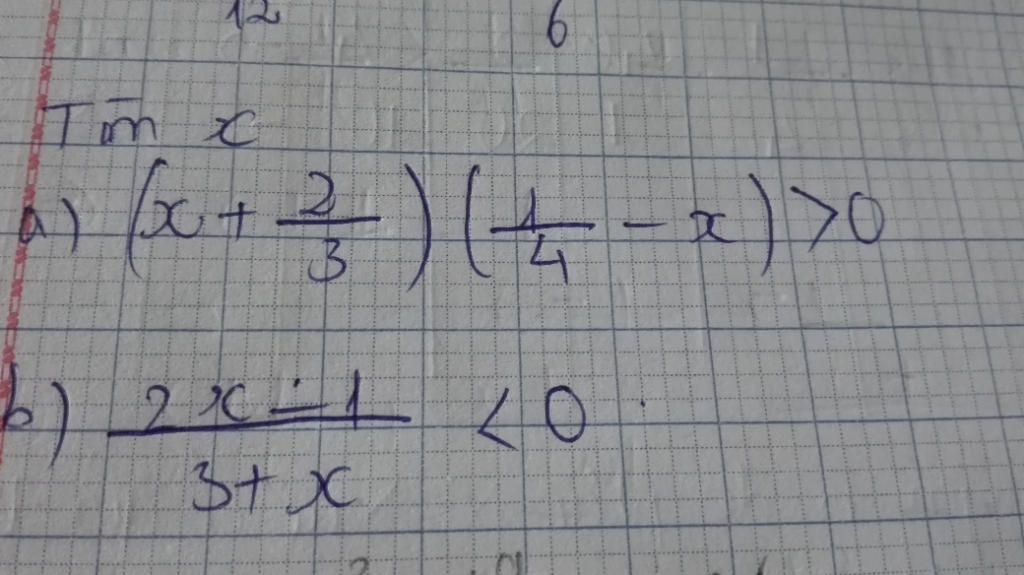 12 6
Tìm x
a) (x + 2/3) (1/4 - x) > 0
b) (2x - 1)/(3 + x) < 0